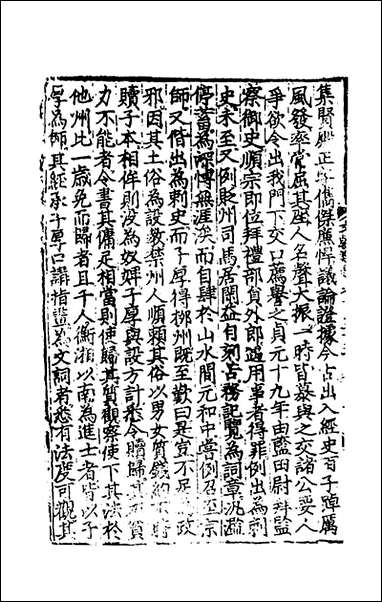 集賢殿正字儁傑廉悍議論證據今古出入經史百子踔厲
風發率常屈其座人名聲大振一時皆慕與之交諸公要人
爭欲令出我門下交口薦譽之貞元十九年由藍田尉拜監
察御史順宗即位拜禮部員外郎遇用事者得罪例出為刺
史未至又例貶州司馬居閒益自刻苦務記覽為詞章汎濫
停蓄為深博無涯涘而自肆於山水間元和中嘗例召至京
師又偕出為刺史而子厚得柳州既至歎曰是豈不足為政
邪因其土俗為設教禁州人順賴其俗以男女質錢約不時
贖子本相侔則沒為奴婢子厚與設方計悉令贖歸其尤貧
力不能者令書其傭足相當則使歸其質觀察使下其法於
他州比一歲免而歸者且千人衡湘以南為進士者皆以子
厚為師其經承子厚口講指畫為文詞者悉有法度可觀其